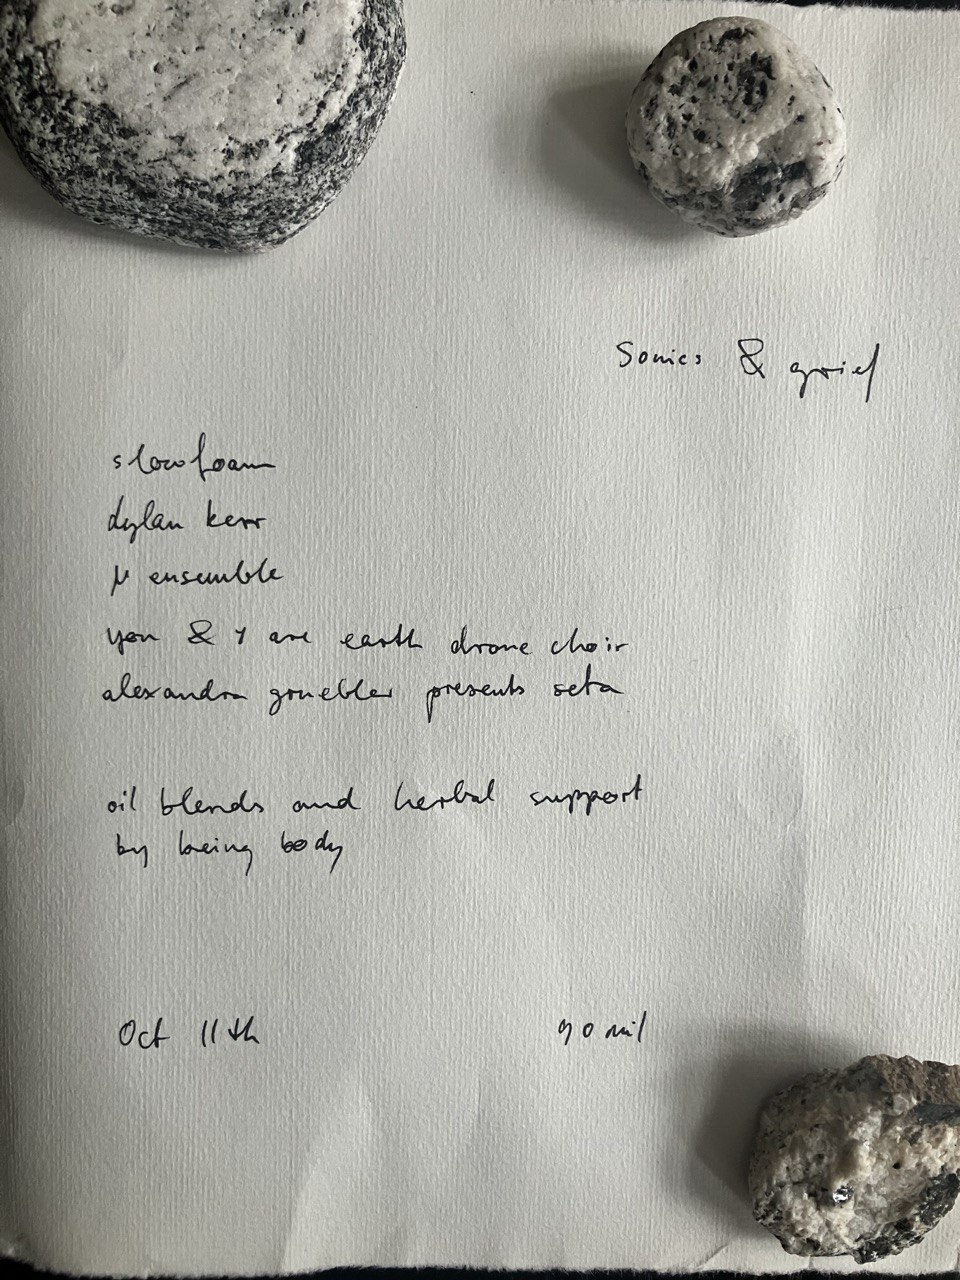 Sonics & grief
slowfoam
dylan kerr
μ ensemble
you & I are earth drone choir
alexandra gruebler presents seta
oil blends and herbal support
by being body
Oct 11th
90 mil